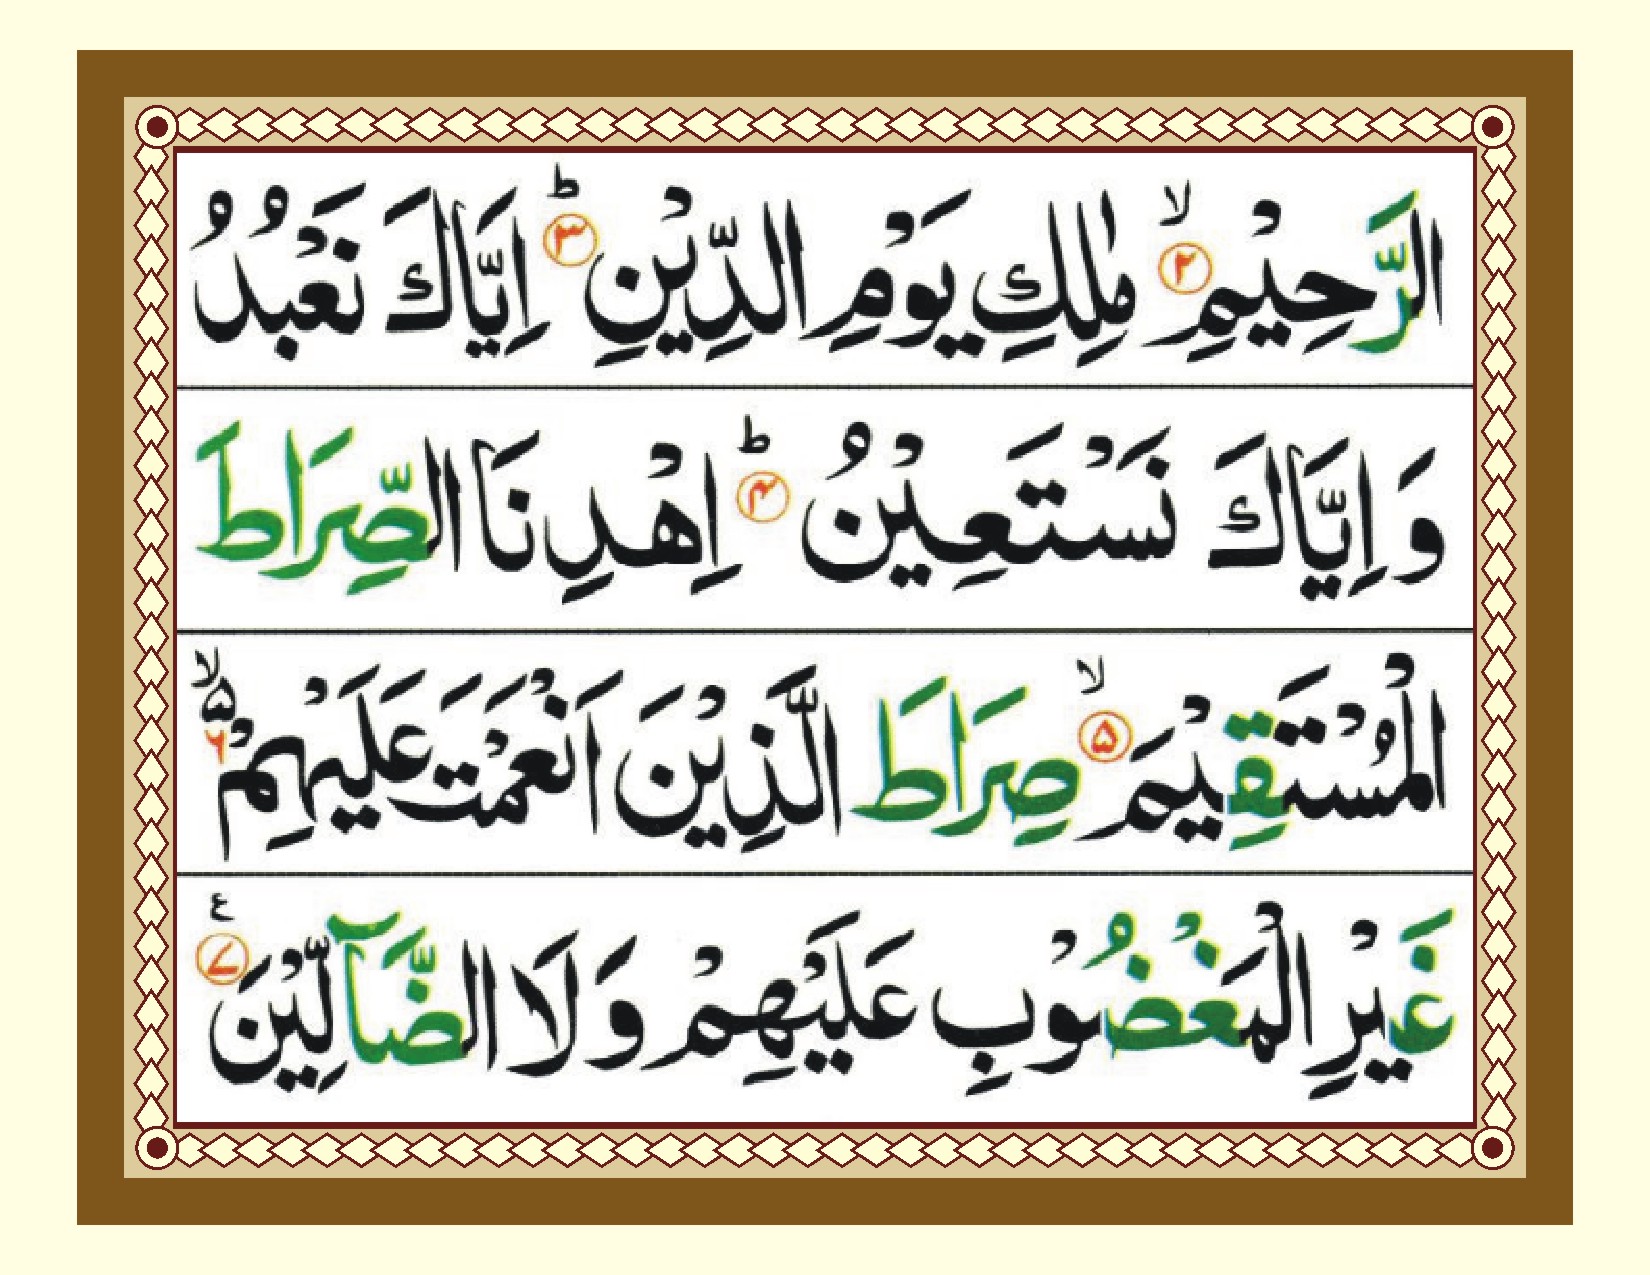 الرَّحِيْمِ ۙ﴿۲﴾ مٰلِكِ يَوْمِ الدِّيْنِ ؕ﴿۳﴾ اِيَّاكَ نَعْبُدُ
وَ اِيَّاكَ نَسْتَعِيْنُ ؕ﴿۴﴾ اِهْدِنَا الصِّرَاطَ
الْمُسْتَقِيْمَ ۙ﴿۵﴾ صِرَاطَ الَّذِيْنَ اَنْعَمْتَ عَلَيْهِمْ ۙ۵ ۶
غَيْرِ الْمَغْضُوْبِ عَلَيْهِمْ وَ لَا الضَّآلِّيْنَ ﴿۷﴾ ع